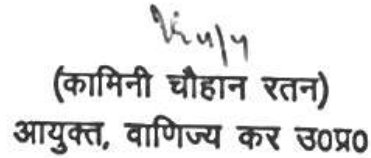 (कामिनी चौहान रतन)
आयुक्त, वाणिज्य कर उ0प्र0